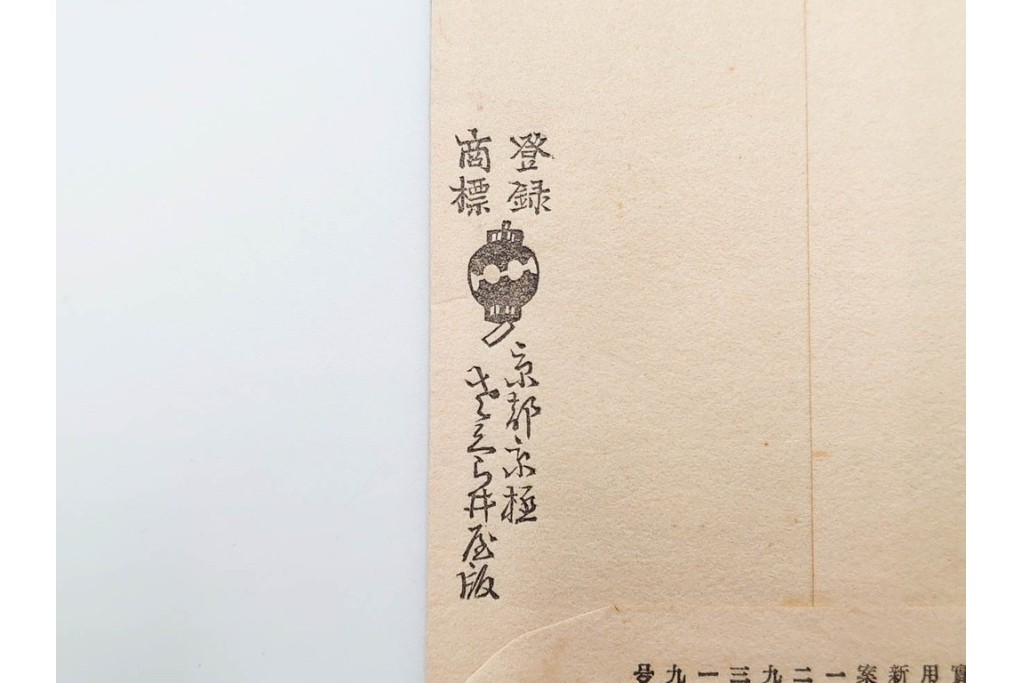 登録
商標
京都京極
さくら井屋版
實用新案一二九三一九号